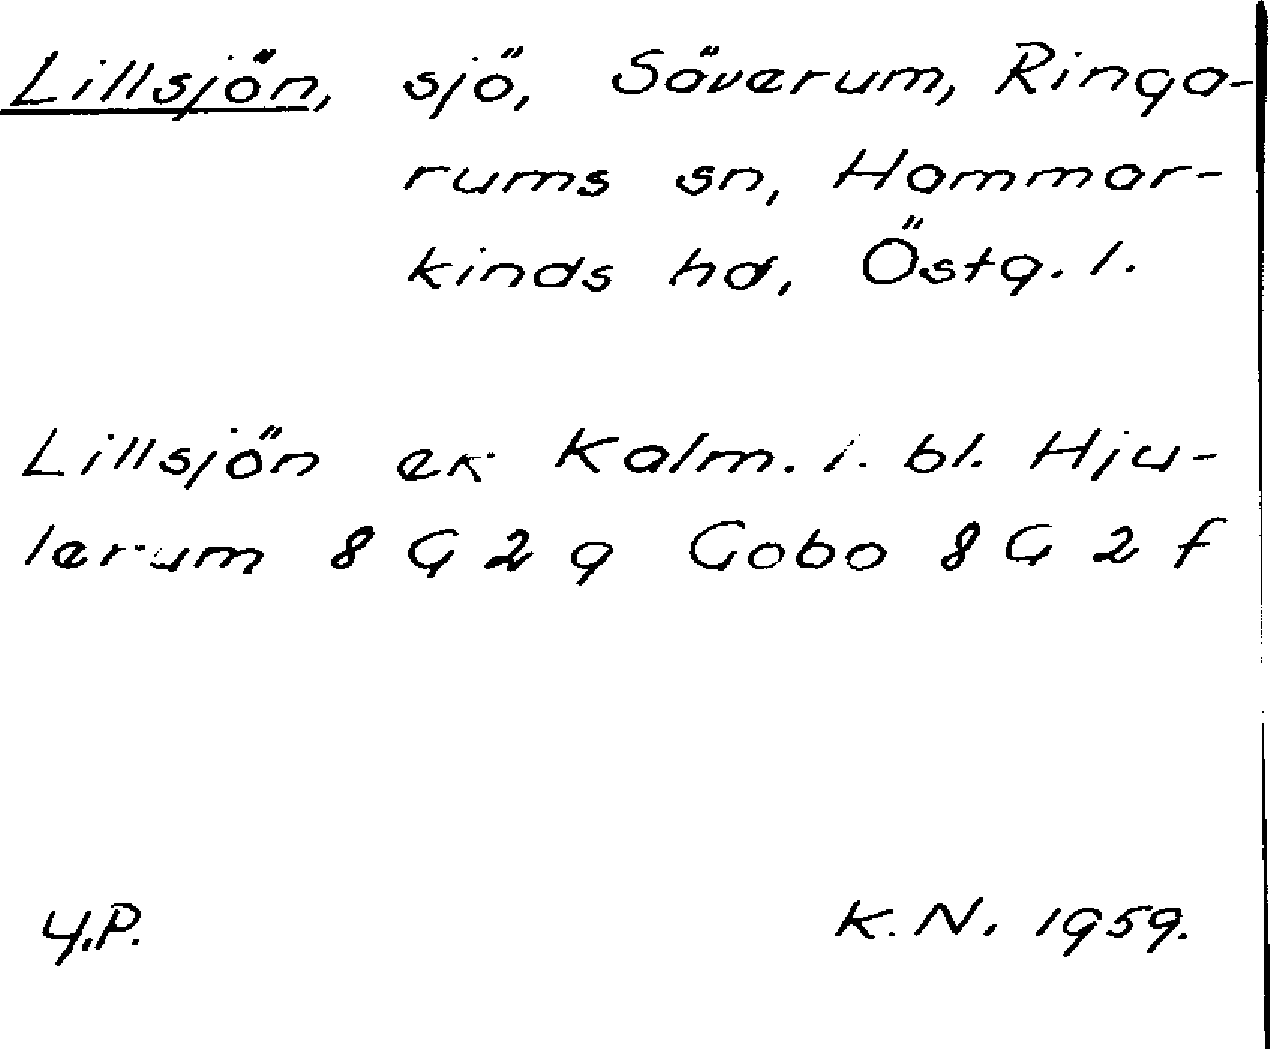 Lillsjön, sjö, Säverum, Ringa-
rums sn, Hammar-
kinds hd, Östg. l.
Lillsjön ek Kalm. i. bl. Hju-
lerum 8 G 2 g Gobo 8 G 2 f
Y.P. K.N. 1959.